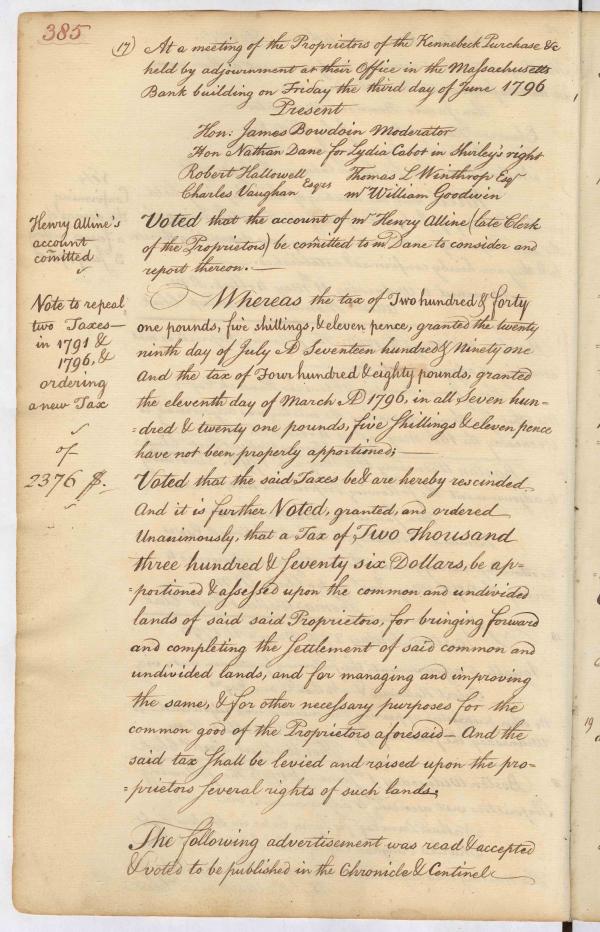 385
17) At a meeting of the Proprietors of the Kennebeck Purchase &c
held by adjournment at their Office in the Massachusetts
Bank building on Friday the third day of June 1796
Present
Hon: James Bowdoin Moderator
Hon Nathan Dane for Lydia Cabot in Shirley's right
Robert Hallowell Thomas L Winthrop Esqr
Charles Vaughan Esqrs mr William Goodwin
Henry Alline's
account
com̃itted
Voted that the account of mr Henry Alline (late Clerk
of the Proprietors) be com̃itted to mr Dane to consider and
report thereon.—
Note to repeal
two Taxes—
in 1791 &
1796, &
ordering
a new Tax
of
2376 $.
Whereas the tax of Two hundred & forty
one pounds, five shillings, & eleven pence, granted the twenty
ninth day of July AD Seventeen hundred & Ninety one
And the tax of Four hundred & eighty pounds, granted
the eleventh day of March AD 1796, in all Seven hun-
=dred & twenty one pounds, five Shillings & eleven pence
have not been properly apportioned; —
Voted that the said Taxes be & are hereby rescinded.
And it is further Voted, granted, and ordered
Unanimously, that a Tax of Two Thousand
three hundred & Seventy six Dollars, be ap-
=portioned & assessed upon the common and undivided
lands of said said Proprietors, for bringing forward
and completing the Settlement of said common and
undivided lands, and for managing and improving
the same, & for other necessary purposes for the
common good of the Proprietors aforesaid— And the
said tax shall be levied and raised upon the pro-
=prietors several rights of such lands.
The following advertisement was read & accepted
& voted to be published in the Chronicle & Centinel
19